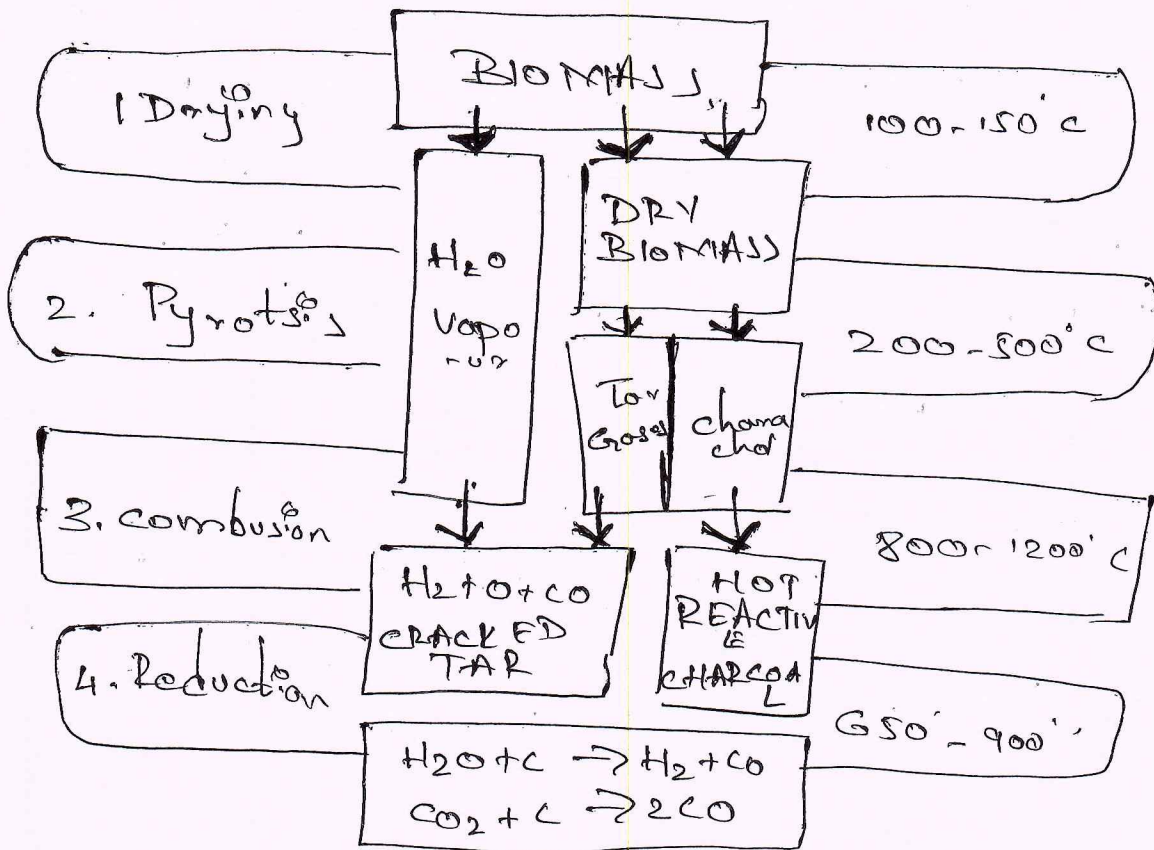 BIOMASS
1 Drying
100-150°C
H2O
Vapo
-ur
DRY
BIOMASS
2. Pyrotsis
200-500°C
Tar
Gases
3. combusion
800-1200°C
H2+O+CO
CRACKED
TAR
HOT
REACTIV
E
CHARCOA
L
4. Reduction
650°-900°
H2O+C → H2+CO
CO2+C → 2CO